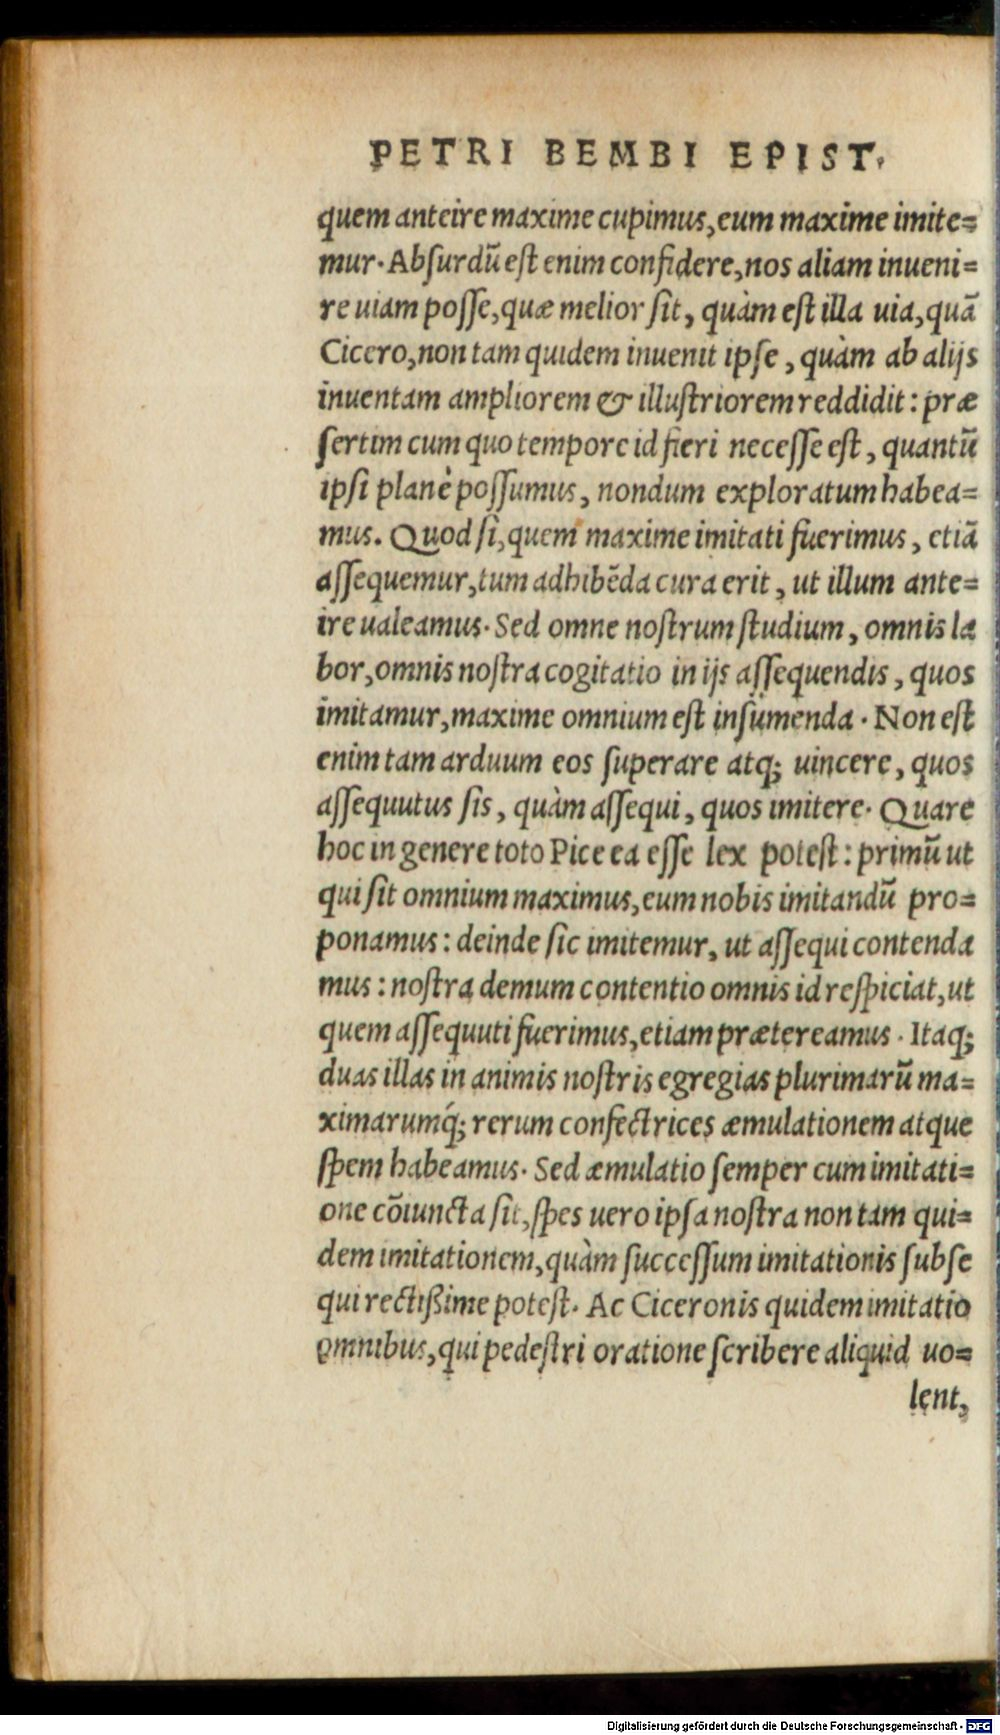 PETRI BEMBI EPIST.
quem anteire maxime cupimus, eum maxime imite=
mur. Abſurdū eſt enim confidere, nos aliam inueni=
re uiam poſſe, quæ melior ſit, quàm eſt illa uia, quā
Cicero, non tam quidem inuenit ipſe, quàm ab alijs
inuentam ampliorem & illuſtriorem reddidit: præ
ſertim cum quo tempore id fieri neceſſe eſt, quantū
ipſi planè poſſumus, nondum exploratum habea=
mus. Quod ſi, quem maxime imitati fuerimus, etiā
aſſequemur, tum adhibēda cura erit, ut illum ante=
ire ualeamus. Sed omne noſtrum ſtudium, omnis la
bor, omnis noſtra cogitatio in ijs aſſequendis, quos
imitamur, maxime omnium eſt inſumenda. Non eſt
enim tam arduum eos ſuperare atq; uincere, quos
aſſequutus ſis, quàm aſſequi, quos imitere. Quare
hoc in genere toto Pice ea eſſe lex poteſt: primū ut
qui ſit omnium maximus, eum nobis imitandū pro=
ponamus: deinde ſic imitemur, ut aſſequi contenda
mus: noſtra demum contentio omnis id reſpiciat, ut
quem aſſequuti fuerimus, etiam prætereamus. Itaq;
duas illas in animis noſtris egregias plurimarū ma=
ximarumq́; rerum confectrices æmulationem atque
ſpem habeamus. Sed æmulatio ſemper cum imitati=
one cōiuncta ſit, ſpes uero ipſa noſtra non tam qui=
dem imitationem, quàm ſucceſſum imitationis ſubſe
qui rectißime poteſt. Ac Ciceronis quidem imitatio
omnibus, qui pedeſtri oratione ſcribere aliquid uo=
lent,
Digitalisierung gefördert durch die Deutsche Forschungsgemeinschaft - DFG